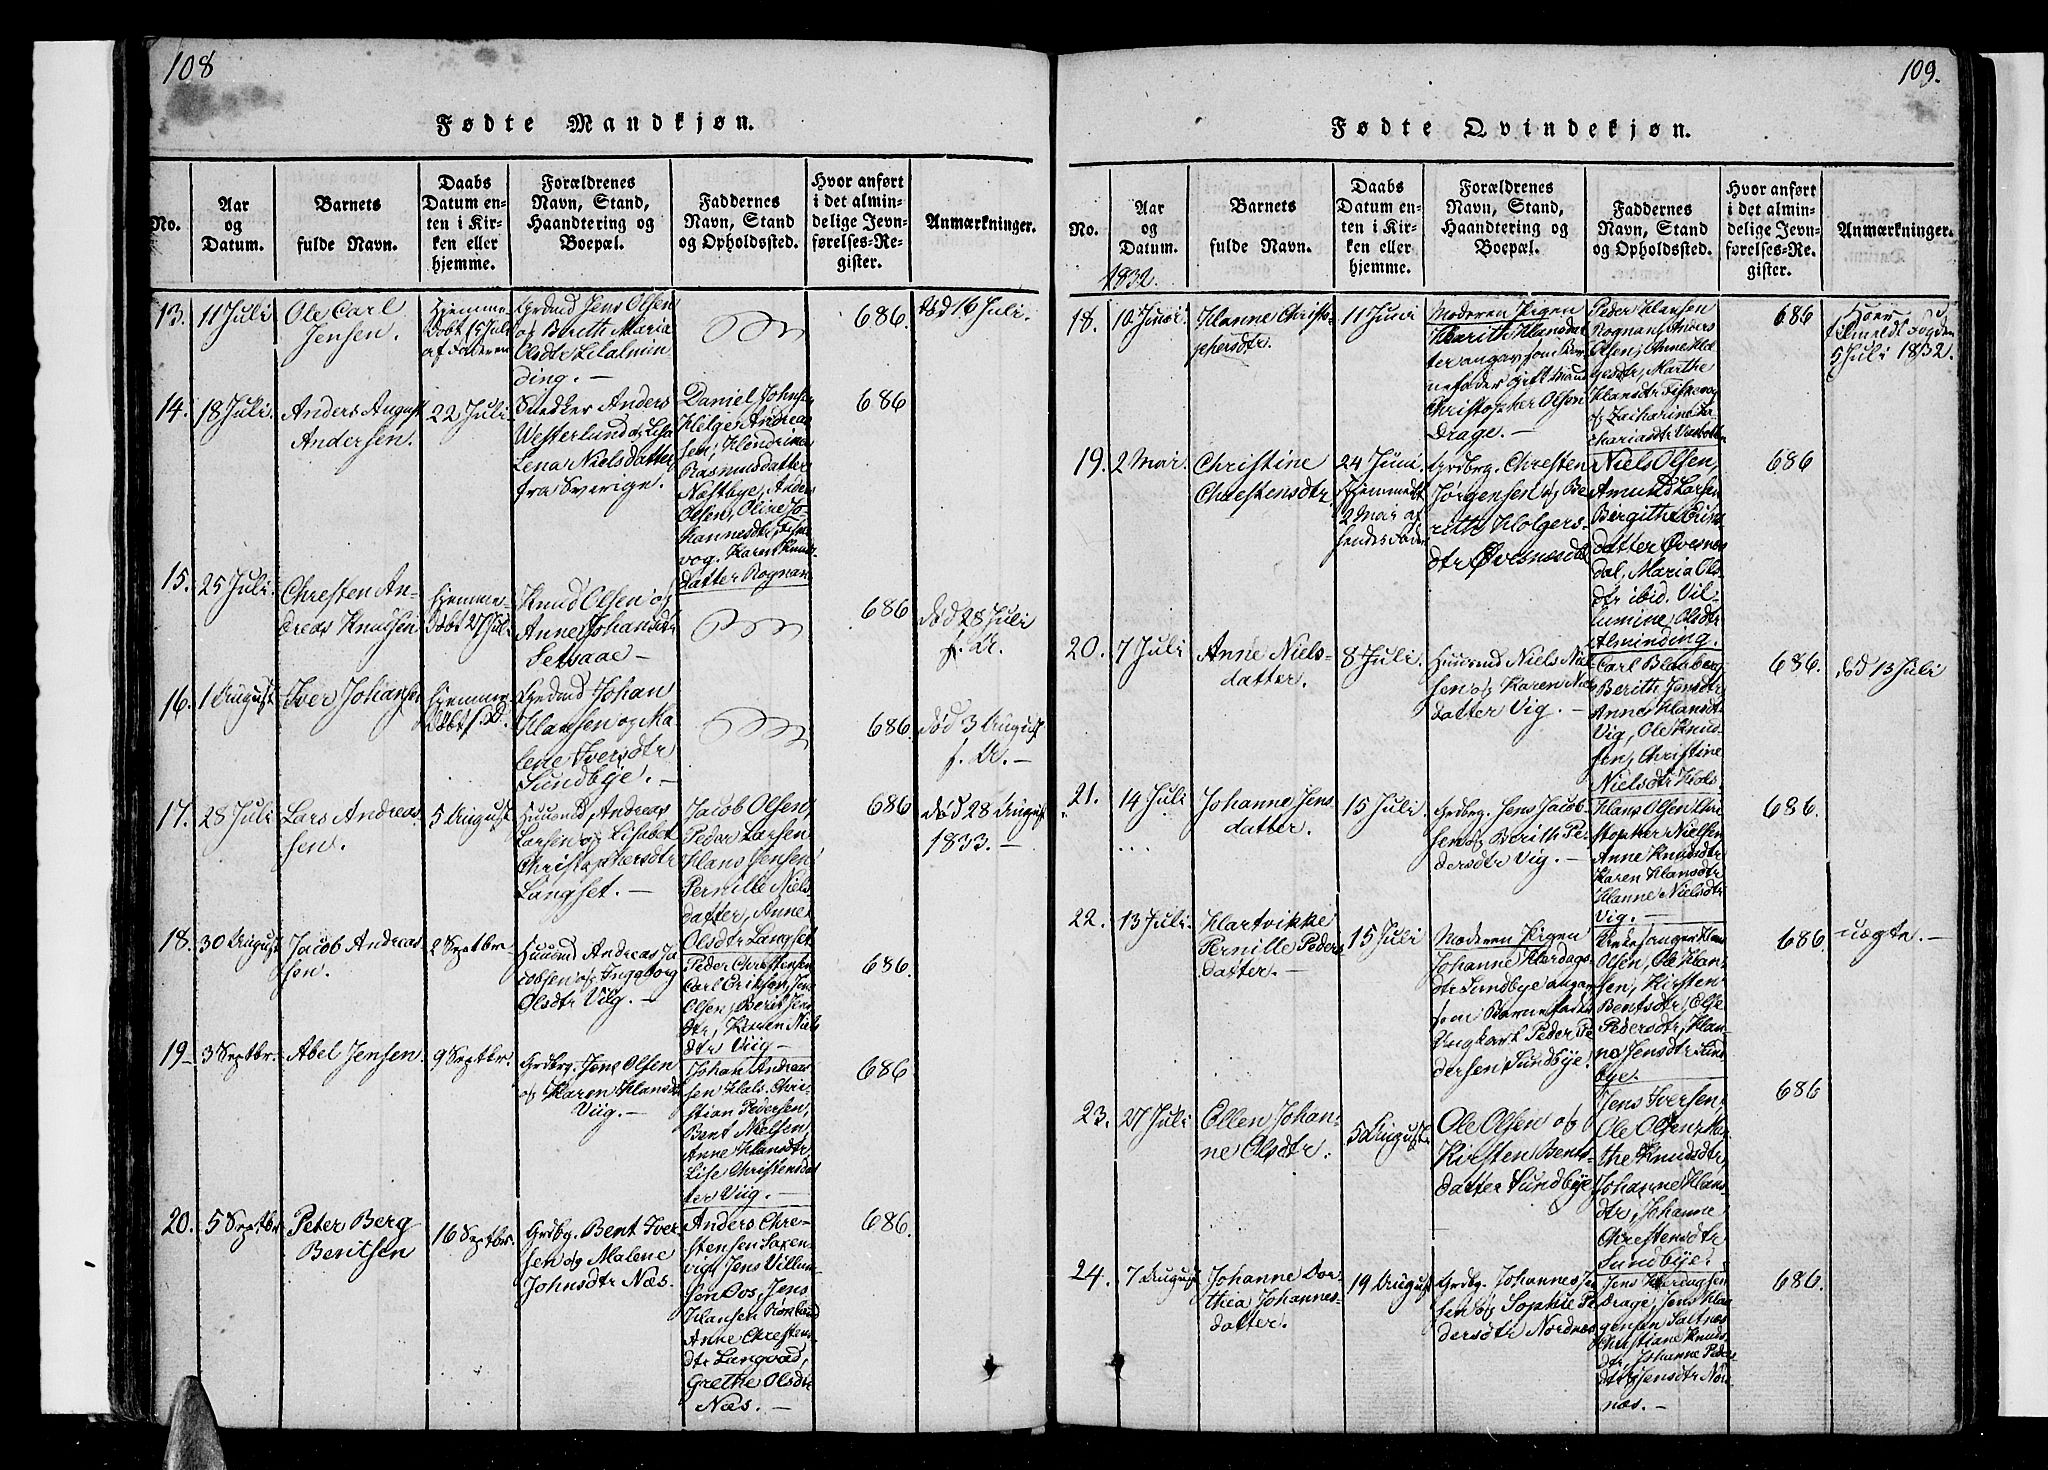 108
Fødte Mandkjøn.
No.
Aar
og
Datum.
Barnets
fulde Navn.
Daabs
Datum en-
ten i Kir-
ken eller
hjemme.
Forældrenes
Navn, Stand,
Haandtering og
Boepæl.
Faddernes
Navn, Stand
og Opholdssted.
Hvor anført
i det almin-
delige Jevn-
førelses-Re-
gister.
Anmærkninger.
13.
11 Juli
Ole Carl
Jensen.
Hjemme
døbt 15 Juli
af Faderen
Grdmd Jens Olsen
og Berith Maria
Olsdtr Lilalmin
ding. —
686.
død 16 Juli.
14.
18 Juli.
Anders August
Andersen.
22 Juli.
Snedker Anders
Westerlund og Lisa
Lena Nielsdatter
fra Sverige.
Daniel Johns
Helge Andrea
sen, Hendrina
Rasmusdatter
Næstbye, Anders
Olsen, Oline Jo-
hannesdtr Fiske
vog. Karen Knuds
datter Rognan
686
15.
25 Juli.
Chresten An-
dreas Knudsen
hjemme-
døbt 27 Juli.
Knud Olsen og
Anne Johansdtr
Setsaae —
686
død 28 Juli
f. A.
16.
1 August
Iver Johansen
hjemme
døbt f. D.
Grdmd Johan
Hansen og Ma
lene Iversdtr
Sundbye. —
686.
død 3 August
f. A. —
17.
28 Juli
Lars Andreas
sen.
5 August
Huusmd Andreas
Larsen og Lisabet
Christophersdtr
Langset. —
Jacob Olsen,
Peder Larsen
Hans Jensen
Pernille Niels
datter, Anne
Olsdtr Langset
686
død 28 August
1833. —
18.
30 August
Jacob Andreas
sen.
2 Septbr
Huusmd Andreas Ja
cobsen og Ingeborg
Olsdtr Viig. —
Peder Christensen
Carl Eriksen, Jens
Olsen, Berit Jens
dtr, Karen Niels
dtr Viig —
686.
19
3 Septbr.
Abel Jensen.
9 Septbr.
Grdbrg. Jens Olsen
og Karen Hansdtr
Viig. —
Johan Andreas
sen Hals. Chri-
stian Pedersen,
Bent Nielsen
Anne Hansdtr
Lise Christensdat
ter Viig. —
686
20.
5 Septbr
Peter Berg
Bentsen
16 Septbr.
Grdbg. Bent Iver
sen og Malene
Johnsdtr Næs.
Anders Chre-
stensen Saxen-
vig, Jens Villum
sen Oos, Jens
Hansen
Anne Chrestens
dtr Langvad,
Grethe Olsdtr
Næs. —
686.
109.
Fødte Qvindekjøn.
No.
Aar
og
Datum.
1832.
Barnets
fulde Navn.
Daabs
Datum en-
ten i Kir-
ken eller
hjemme.
Forældrenes
Navn, Stand,
Haandtering og
Boepæl.
Faddernes
Navn, Stand
og Opholdssted.
Hvor anført
i det almin-
delige Jevn-
førelses-Re-
gister.
Anmærkninger.
18.
10 Juni.
Hanne Christo-
phersdtr.
11 Juni
Moderen Pigen
Marith Hansdat
ter angav som Bar
nefader gift Mand
Christopher Olsen
Drage. —
Peder Hansen
Rognan, Anders
Olsen, Anne Hel
gesdtr, Marthe
Hansdtr Fiskevog
og Zacharine Za
chariasdtr
686
5 Juli 1832.
19.
2 Mai.
Christine
Chrestensdtr.
24 Juni.
hjemmedt
2 Mai af
sendes Fader
Grdbrg. Chresten
Jørgensen og Be
rith Holgers-
dtr Øvesnesdal
Niels Olsen,
Amund Larsen
Birgithe
datter Øvesnes
dal, Maria Ols
dtr ibid. Vil
lumine Olsdtr
Alminding.
686
20.
7 Juli
Anne Niels-
datter.
8 Juli.
Huusmd Niels Niel
sen og Karen Niels
datter Vig. —
Carl Blaaberg
Berith Jensdtr
Anne Hansdtr
Vig, Ole Knud
sen, Christine
Nielsdtr Hals.
686.
død 13 Juli
21.
14 Juli
Johanne Jens
datter.
15 Juli
Grdbrg. Jens Jacob
sen og Berith Pe
dersdtr Vig. —
Hans Olsen, Chri
stopher Nielsen
Anne Knudsdtr
Karen Hansdtr
Hanne Nielsdtr
Vig. —
686.
22.
13 Juli
Hartvikke
Pernille Peders
datter. —
15 Juli
Moderen Pigen
Johanne Hardags
dtr Sundbye angav
som Barnefader
Ungkarl Peder Pe
dersen Sundbye.
Kirkesanger Hans
Olsen, Ole Han
sen, Kirsten
Bentsdtr, Else
Pedersdtr, Han
na Jensdtr Sund
bye.
686.
uægte. —
23.
27 Juli
Ellen Johan-
ne Olsdtr.
5 August
Ole Olsen og
Kirsten Bents-
datter Sundbye
Jens Iversen,
Ole Olsen, Mar
the Knudsdtr,
Johanne Hans
dtr, Johanne
Chrestensdtr
Sundbye.
686
24.
7 August
Johanne Dor-
thea Johannes-
datter.
19 August
Grdbg. Johannes Jen
sen og Sophie Pe
dersdtr Nordnes
Jens Herdagsen
Drage, Jens Haa
gensen Saltnes
Christiane Knuds
dtr, Johanne Peders
dtr, Jensdtr Nord
nes. —
686.